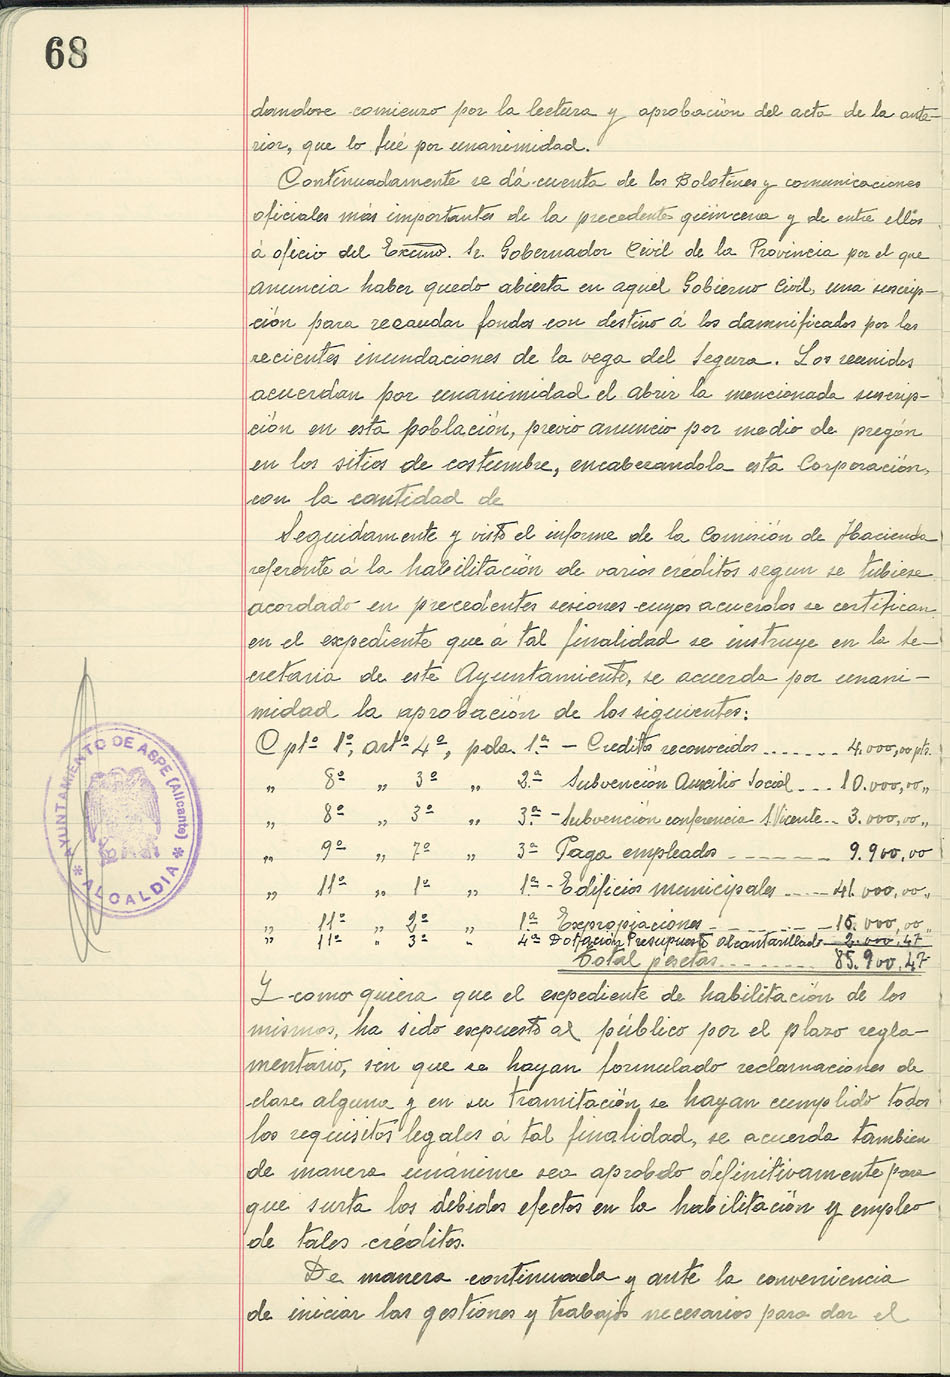 68
dandose comienzo por la lectura y aprobación del acta de la ante-
rior, que lo fué por unanimidad.
Continuadamente se dá cuenta de los Boletines y comunicaciones
oficiales más importantes de la precedente quincena y de entre ellos
á oficio del Excmo. Sr. Gobernador Civil de la Provincia por el que
anuncia haber quedo abierta en aquel Gobierno Civil, una suscrip-
ción para recaudar fondos con destino á los damnificados por las
recientes inundaciones de la vega del Segura. Los reunidos
acuerdan por unanimidad el abrir la mencionada suscrip-
ción en esta población, previo anuncio por medio de pregón
en los sitios de costumbre, encabezandola esta Corporación,
con la cantidad de
Seguidamente y visto el informe de la Comisión de Hacienda
referente á la habilitación de varios créditos segun se tubiese
acordado en precedentes sesiones cuyos acuerdos se certifican
en el expediente que á tal finalidad se instruye en la Se-
cretaria de este Ayuntamiento, se acuerda por unani-
midad la aprobación de los siguientes:
Cptº 1º, artº 4º, pda. 1ª - Creditos reconocidos ....... 4.000,00 pts.
" 8º " 3º " 2ª Subvención Auxilio Social ... 10.000,00 "
" 8º " 3º " 3ª - Subvención conferencia S. Vicente .. 3.000,00 "
" 9º " 7º " 3ª Paga empleados ------- 9.900,00
" 11º " 1º " 1ª - Edificios municipales ------ 41.000,00 "
" 11º " 2º " 1ª Expropiaciones --------- 16.000,00 "
" 11º " 3º " 4ª Dotación Presupuesto alcantarillado -- 2.000,47
Total pesetas ......... 85.900,47
Y como quiera que el expediente de habilitación de los
mismos, ha sido expuesto al público por el plazo regla-
mentario, sin que se hayan formulado reclamaciones de
clase alguna y en su tramitación se hayan cumplido todos
los requisitos legales á tal finalidad, se acuerda tambien
de manera unánime sea aprobado definitivamente para
que surta los debidos efectos en la habilitación y empleo
de tales créditos.
De manera continuada y ante la conveniencia
de iniciar las gestiones y trabajos necesarios para dar el
AYUNTAMIENTO DE ASPE (Alicante)
* ALCALDIA *